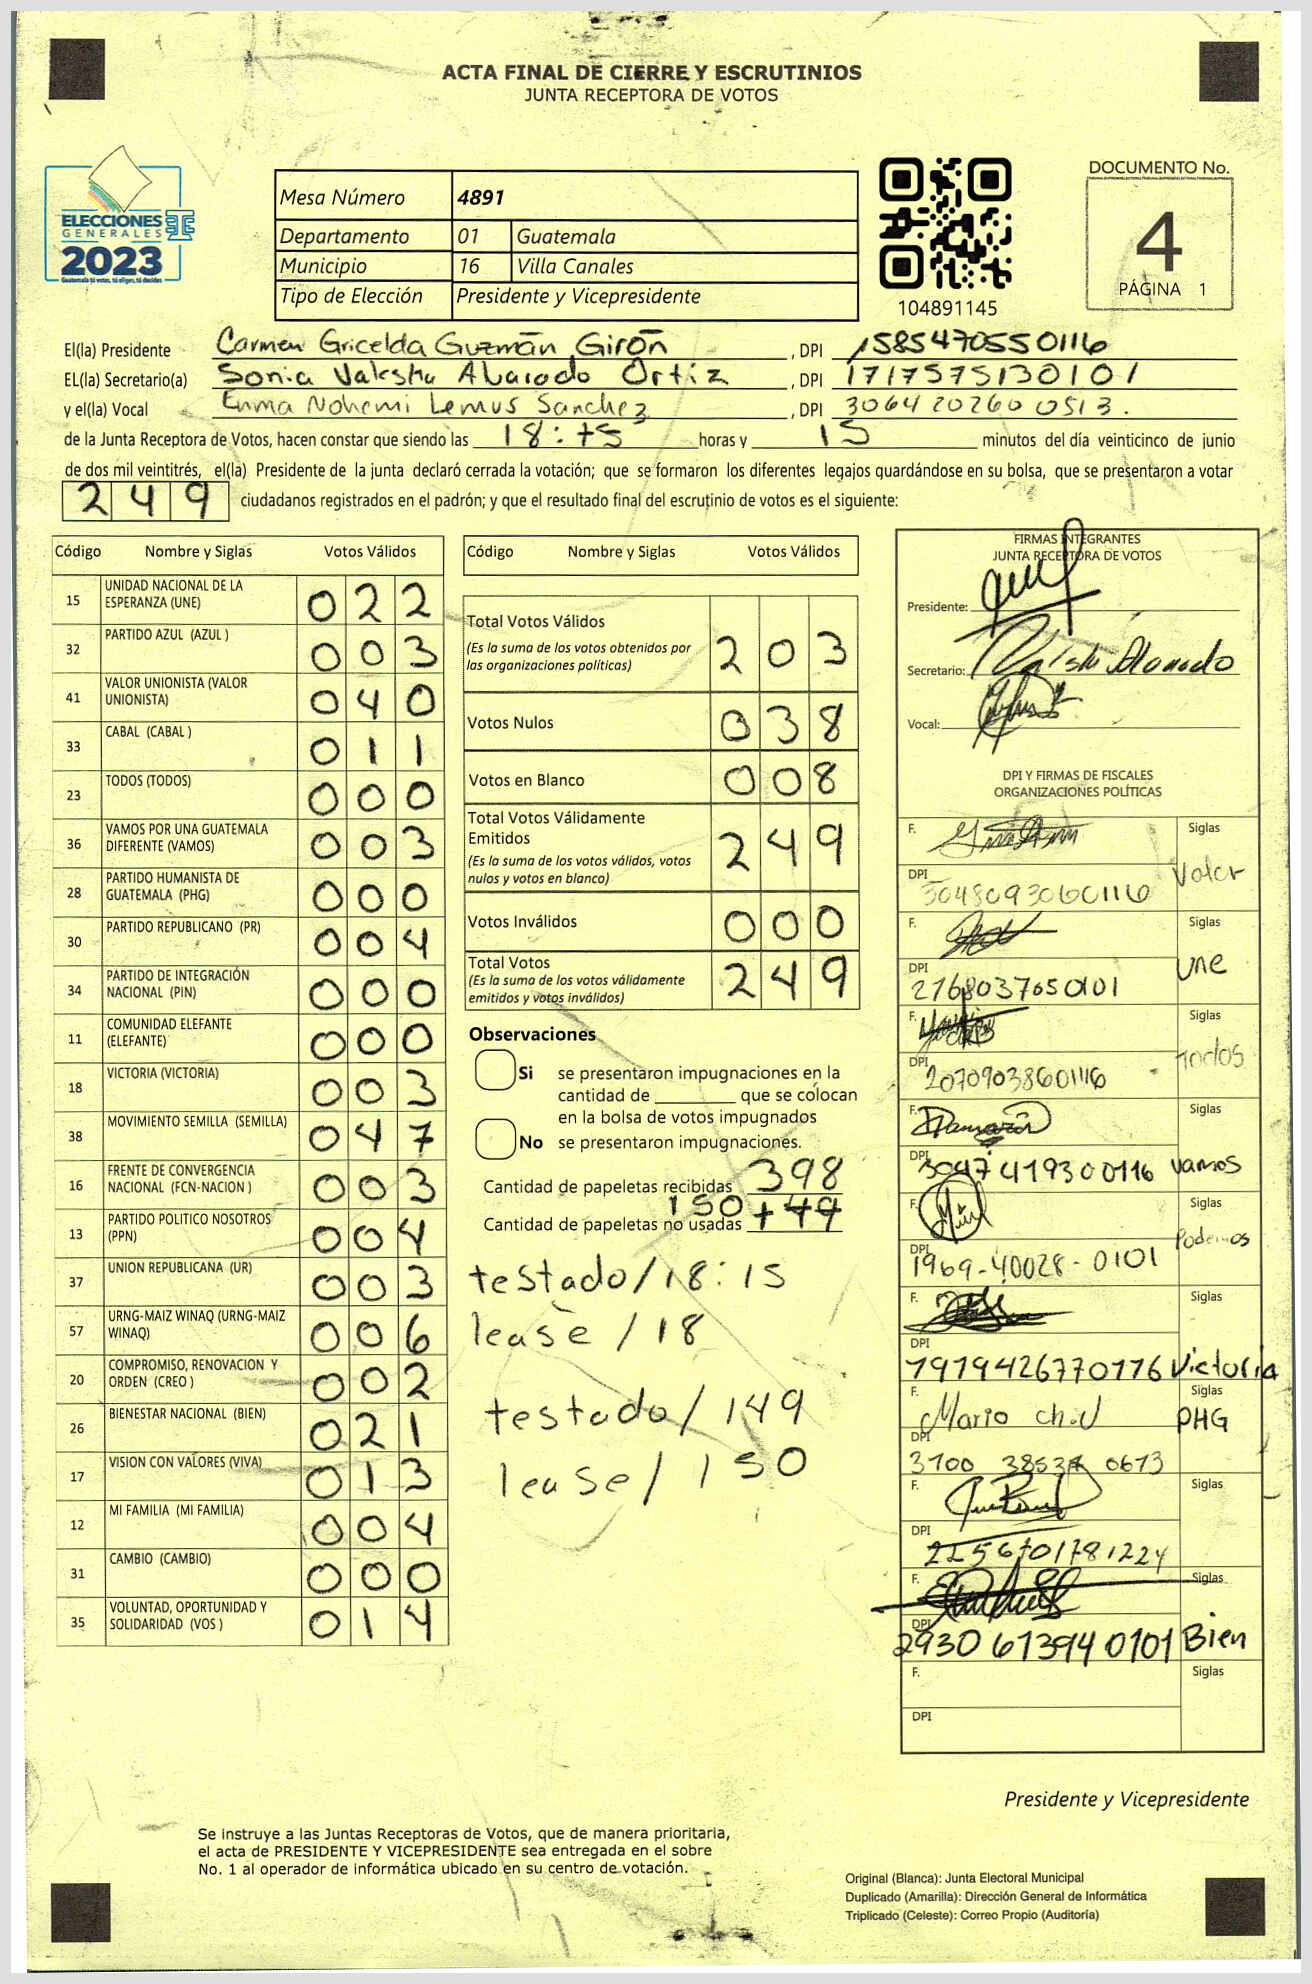 ACTA FINAL DE CIERRE Y ESCRUTINIOS
JUNTA RECEPTORA DE VOTOS
ELECCIONES
GENERALES
2023
Guatemala tú votas, tú eliges, tú decides
Mesa Número 4891
Departamento 01 Guatemala
Municipio 16 Villa Canales
Tipo de Elección Presidente y Vicepresidente
104891145
DOCUMENTO No.
4
PÁGINA 1
El(la) Presidente Carmen Gricelda Guzmán Girón, DPI 1585470550116
EL(la) Secretario(a) Sonia Valeska Alvarado Ortiz, DPI 1717575130101
y el(la) Vocal Enma Nohemi Lemus Sanchez, DPI 3064202600513.
de la Junta Receptora de Votos, hacen constar que siendo las 18:15 horas y 15 minutos del día veinticinco de junio
de dos mil veintitrés, el(la) Presidente de la junta declaró cerrada la votación; que se formaron los diferentes legajos guardándose en su bolsa, que se presentaron a votar
249 ciudadanos registrados en el padrón; y que el resultado final del escrutinio de votos es el siguiente:
Código Nombre y Siglas Votos Válidos
15 UNIDAD NACIONAL DE LA ESPERANZA (UNE) 022
32 PARTIDO AZUL (AZUL ) 003
41 VALOR UNIONISTA (VALOR UNIONISTA) 040
33 CABAL (CABAL ) 011
23 TODOS (TODOS) 000
36 VAMOS POR UNA GUATEMALA DIFERENTE (VAMOS) 003
28 PARTIDO HUMANISTA DE GUATEMALA (PHG) 000
30 PARTIDO REPUBLICANO (PR) 004
34 PARTIDO DE INTEGRACIÓN NACIONAL (PIN) 000
11 COMUNIDAD ELEFANTE (ELEFANTE) 000
18 VICTORIA (VICTORIA) 003
38 MOVIMIENTO SEMILLA (SEMILLA) 047
16 FRENTE DE CONVERGENCIA NACIONAL (FCN-NACION ) 003
13 PARTIDO POLITICO NOSOTROS (PPN) 004
37 UNION REPUBLICANA (UR) 003
57 URNG-MAIZ WINAQ (URNG-MAIZ WINAQ) 006
20 COMPROMISO, RENOVACION Y ORDEN (CREO ) 002
26 BIENESTAR NACIONAL (BIEN) 021
17 VISION CON VALORES (VIVA) 013
12 MI FAMILIA (MI FAMILIA) 004
31 CAMBIO (CAMBIO) 000
35 VOLUNTAD, OPORTUNIDAD Y SOLIDARIDAD (VOS ) 014
Código Nombre y Siglas Votos Válidos
Total Votos Válidos 203
(Es la suma de los votos obtenidos por
las organizaciones políticas)
Votos Nulos 038
Votos en Blanco 008
Total Votos Válidamente
Emitidos 249
(Es la suma de los votos válidos, votos
nulos y votos en blanco)
Votos Inválidos 000
Total Votos 249
(Es la suma de los votos válidamente
emitidos y votos inválidos)
Observaciones
Si se presentaron impugnaciones en la
cantidad de ________ que se colocan
en la bolsa de votos impugnados
No se presentaron impugnaciones.
Cantidad de papeletas recibidas 398
Cantidad de papeletas no usadas 150 149
testado/18:15
lease/18
testado/149
lease/150
FIRMAS INTEGRANTES
JUNTA RECEPTORA DE VOTOS
Presidente:
Secretario:
Vocal:
DPI Y FIRMAS DE FISCALES
ORGANIZACIONES POLÍTICAS
F. Siglas
DPI 3048093060116 Valor
F. Siglas
DPI 2768037050101 une
F. Siglas
DPI 2070903860116 Todos
F. Siglas
DPI 3047419300116 Vamos
F. Siglas
DPI 1969-40028-0101 Podemos
F. Siglas
DPI 1919426770116 Victoria
F. Mario Siglas
DPI PHG
F. Siglas
DPI 2256701781224
F. Siglas
DPI 2930613940101 Bien
F. Siglas
DPI
Presidente y Vicepresidente
Se instruye a las Juntas Receptoras de Votos, que de manera prioritaria,
el acta de PRESIDENTE Y VICEPRESIDENTE sea entregada en el sobre
No. 1 al operador de informática ubicado en su centro de votación.
Original (Blanca): Junta Electoral Municipal
Duplicado (Amarilla): Dirección General de Informática
Triplicado (Celeste): Correo Propio (Auditoría)